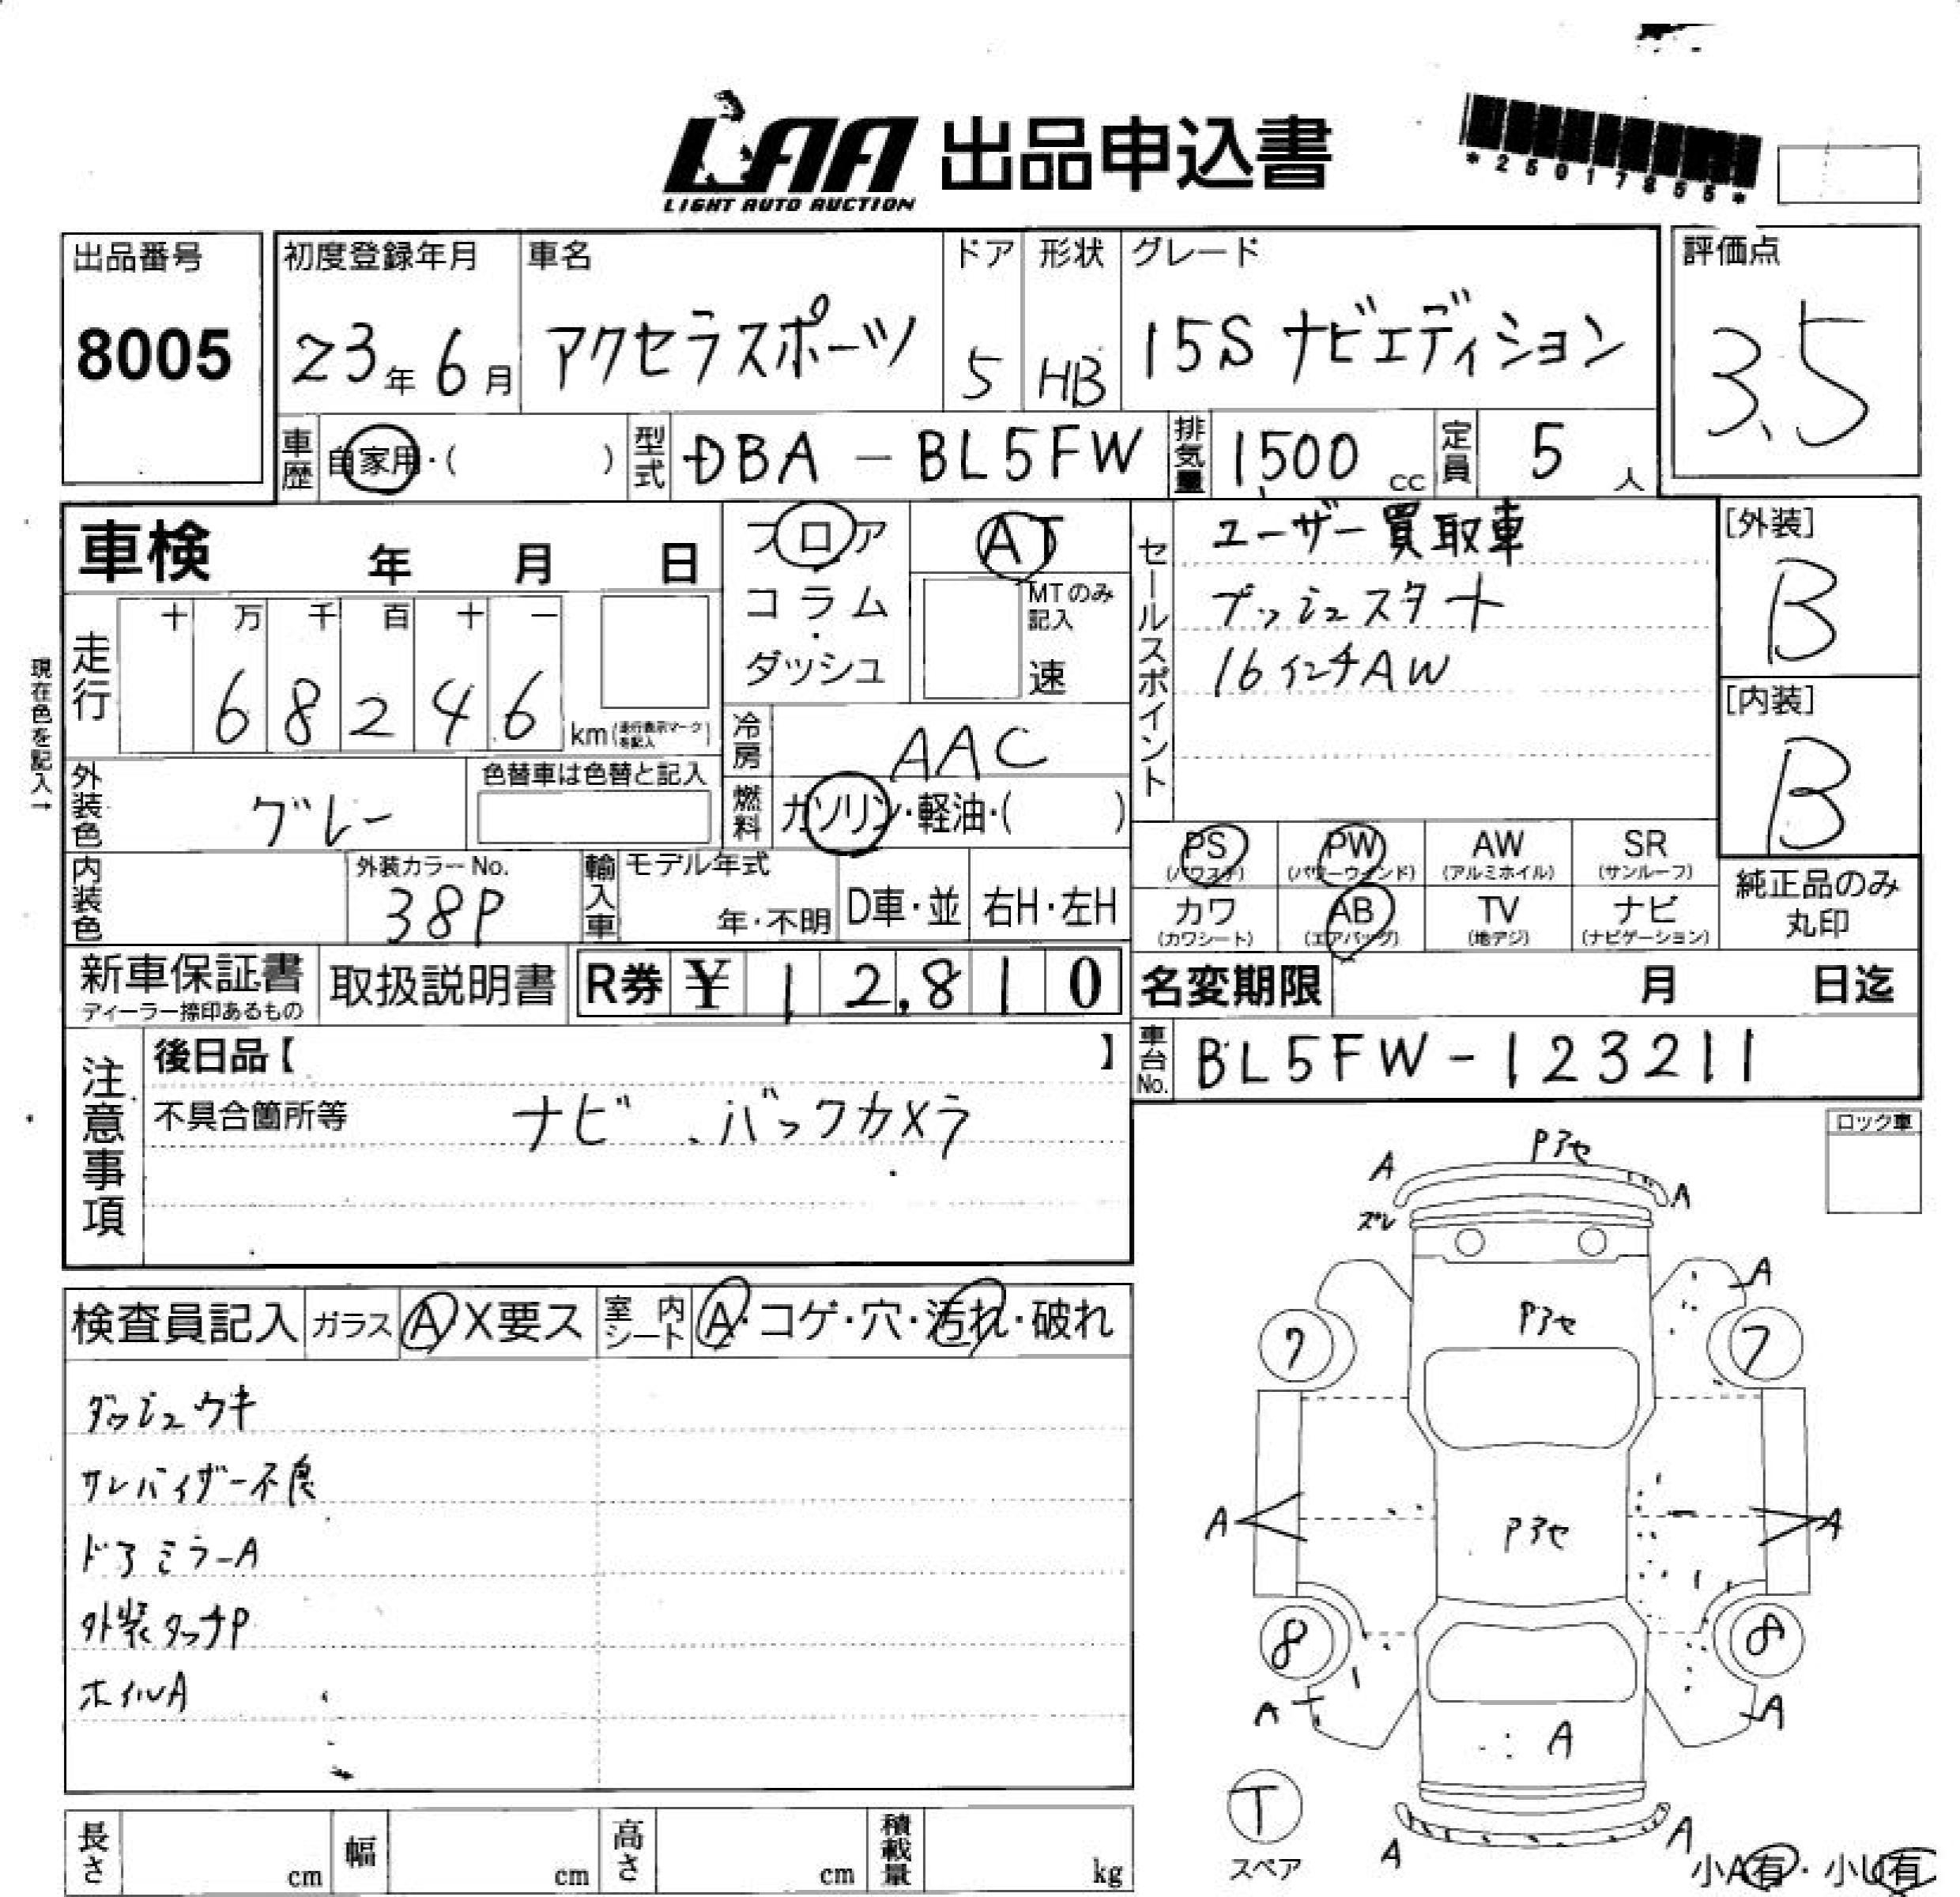 LAA 出品申込書
LIGHT AUTO AUCTION
*25017855*
出品番号
8005
初度登録年月
23年6月
車名
アクセラスポーツ
ドア
5
形状
HB
グレード
15S ナビエディション
評価点
3.5
車歴
自家用・( )
型式
DBA - BL5FW
排気量
1500 cc
定員
5 人
車検 年 月 日
フロア
コラム
・
ダッシュ
AT
MTのみ
記入
速
セールスポイント
ユーザー買取車
プッシュスタート
16インチAW
[外装]
B
[内装]
B
現在色を記入→
走行
十 万 千 百 十 一
6 8 2 4 6
km (走行表示マークを記入)
冷房
AAC
外装色
グレー
色替車は色替と記入
燃料
ガソリン・軽油・( )
PS
(パワステ)
PW
(パワーウインド)
AW
(アルミホイル)
SR
(サンルーフ)
カワ
(カワシート)
AB
(エアバッグ)
TV
(地デジ)
ナビ
(ナビゲーション)
純正品のみ
丸印
内装色
外装カラーNo.
38P
輸入車
モデル年式
年・不明
D車・並
右H・左H
新車保証書
ディーラー捺印あるもの
取扱説明書
R券 ¥ 12,810
名変期限 月 日迄
車台No.
BL5FW-123211
注意事項
後日品【 】
不具合箇所等
ナビ、バックカメラ
ロック車
検査員記入
ガラス
A X要ス
室内
シート
A・コゲ・穴・汚れ・破れ
ダッシュウキ
サンバイザー不良
ドアミラーA
外装タッチP
ホイルA
Pアセ
A
A
ズレ
A
Pアセ
7
7
A
Pアセ
A
8
8
A
A
A
T
スペア
A
A
小A有・小U有
長さ
cm
幅
cm
高さ
cm
積載量
kg